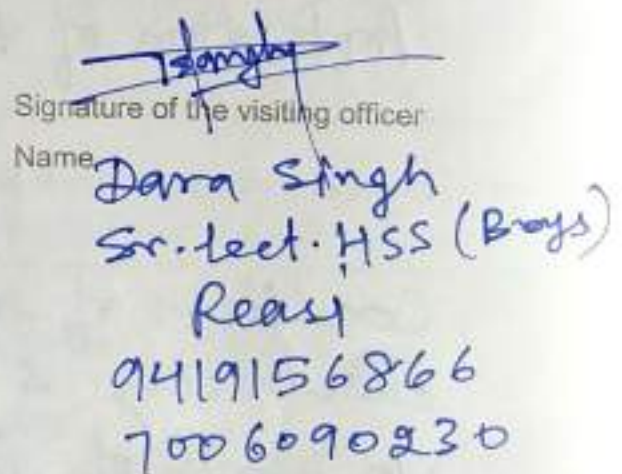 Signature of the visiting officer
Name Dara Singh
Sr. Lect. HSS (Boys)
Reasi
9419156866
7006090230